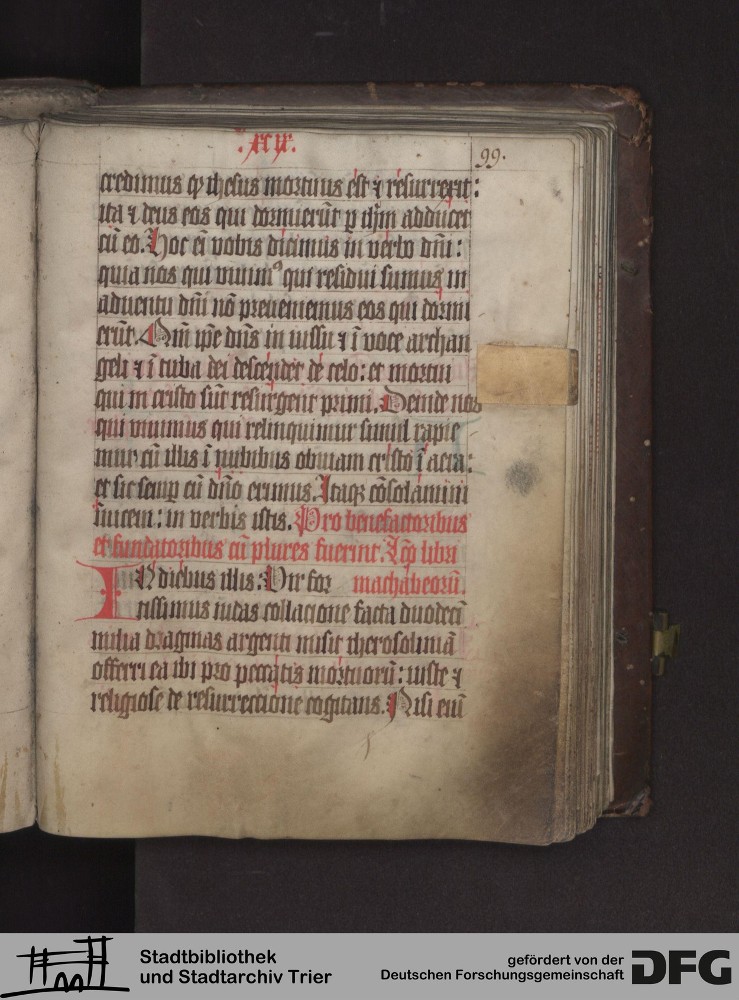 .xcix. 99.
credimus qꝫ ihesus mortuus est ⁊ resurrexit:
ita ⁊ deus eos qui dormierūt ꝑ ihm̄ adducet
cū eo. Hoc eī vobis dicimus in verbo dn̄i:
quia nos qui viuimꝰ qui residui sumus in
aduentu dn̄i nō preueniemus eos qui dormi
erūt. Qm̄ ipe dn̄s in iussu ⁊ ī voce archan
geli ⁊ ī tuba dei descendet de celo: et mortui
qui in cristo sūt resurgent primi. Deinde nos
qui viuimus qui relinquimur simul rapie
mur cū illis ī nubibus obuiam cristo ī aera:
et sic semꝑ cū dn̄o erimus. Itaqꝫ cōsolamini
īuicem: in verbis istis. Pro benefactoribus
et fundatoribus cū plures fuerint. libri
IN diebus illis: Vir for machabeorū.
tissimus iudas collacione facta duodecī
milia dragmas argenti misit iherosolimā
offerri ea ibi pro peccatis mortuorū: iuste ⁊
religiose de resurrectione cogitans. Nisi enī
Stadtbibliothek
und Stadtarchiv Trier
gefördert von der
Deutschen Forschungsgemeinschaft
DFG